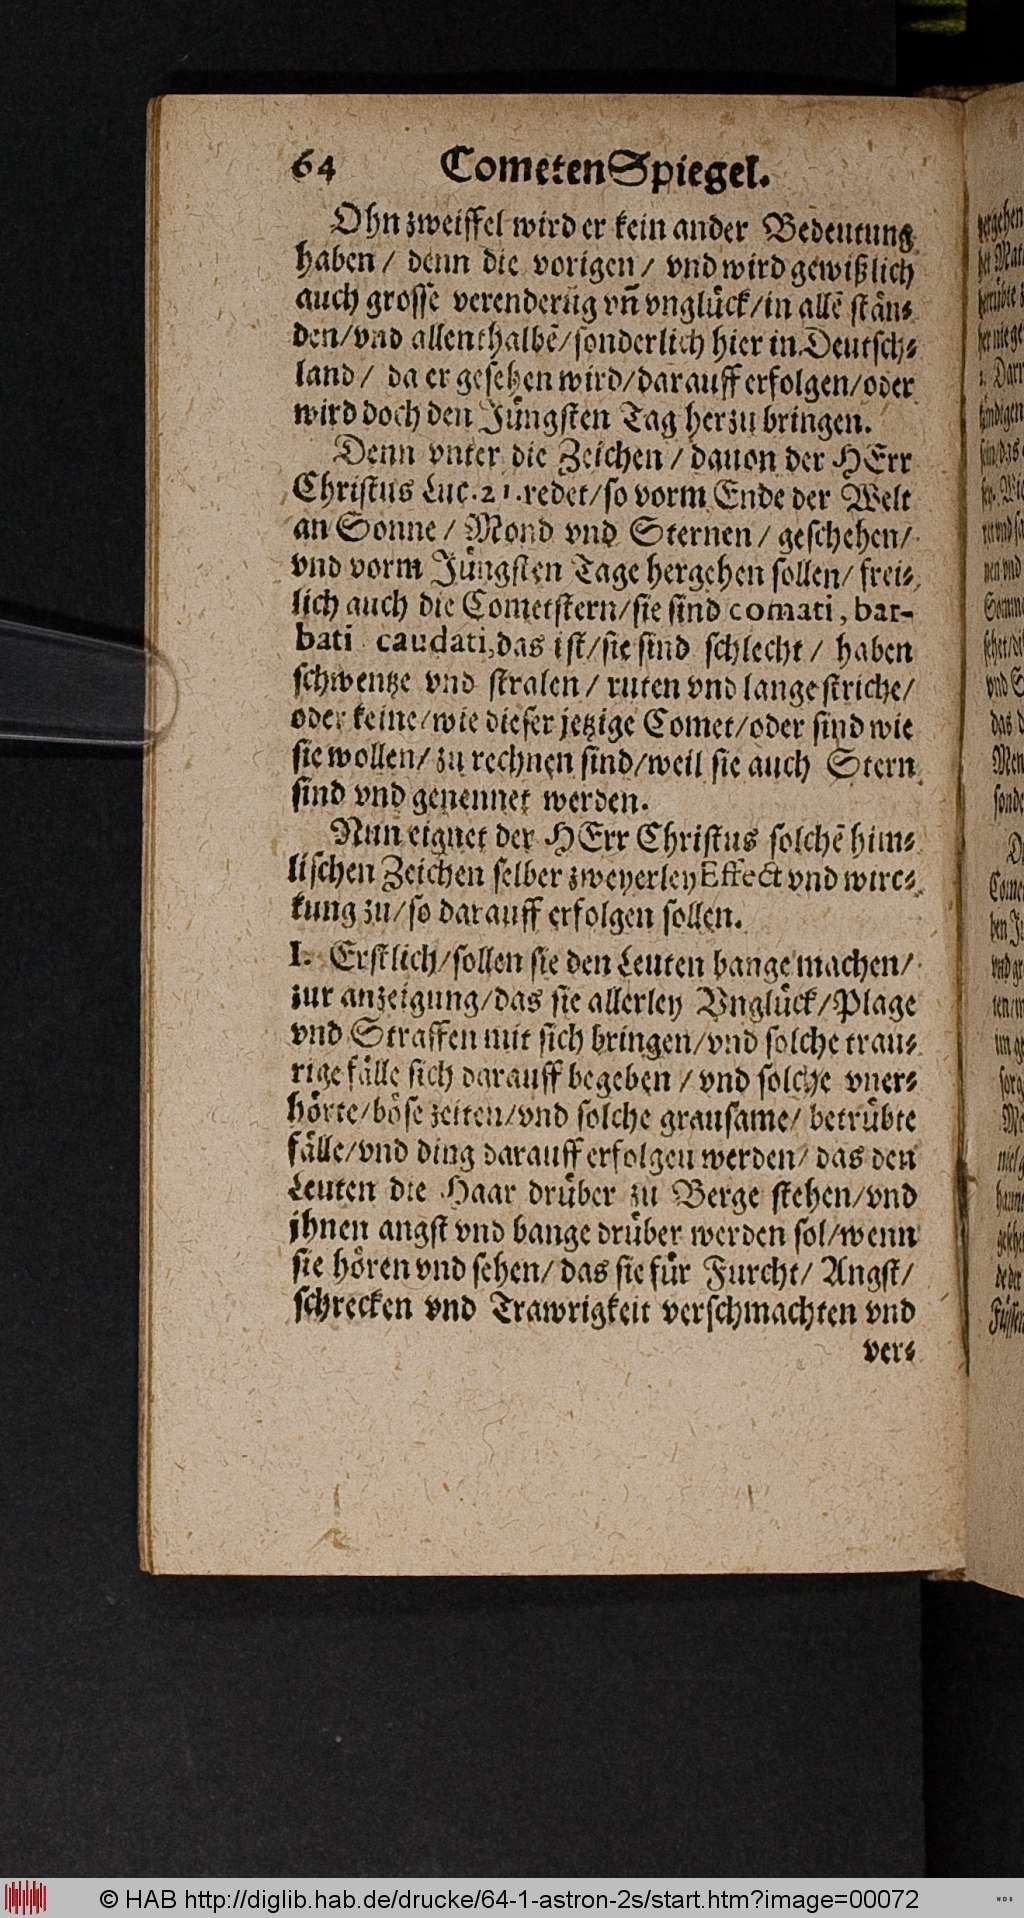 64 CometenSpiegel.
Ohn zweiffel wird er kein ander Bedeutung
haben / denn die vorigen / vnd wird gewißlich
auch grosse verenderũg vñ vnglück/in allẽ stän-
den/vnd allenthalbẽ/sonderlich hier in Deutsch-
land / da er gesehen wird/darauff erfolgen/oder
wird doch den Jüngsten Tag herzu bringen.
Denn vnter die Zeichen / dauon der HErr
Christus Luc. 21. redet/so vorm Ende der Welt
an Sonne / Mond vnd Sternen / geschehen/
vnd vorm Jüngsten Tage hergehen sollen/ frei-
lich auch die Cometstern/sie sind comati, bar-
bati caudati, das ist/sie sind schlecht / haben
schwentze vnd stralen / ruten vnd lange striche/
oder keine/wie dieser jetzige Comet/oder sind wie
sie wollen/ zu rechnen sind/weil sie auch Stern
sind vnd genennet werden.
Nun eignet der HErr Christus solchẽ him-
lischen Zeichen selber zweyerley Effect vnd wirc-
kung zu/so darauff erfolgen sollen.
I. Erstlich/sollen sie den Leuten bange machen/
zur anzeigung/das sie allerley Vnglück/Plage
vnd Straffen mit sich bringen/vnd solche trau-
rige fälle sich darauff begeben / vnd solche vner-
hörte/böse zeiten/vnd solche grausame/ betrübte
fälle/vnd ding darauff erfolgen werden/ das den
Leuten die Haar drüber zu Berge stehen/vnd
jhnen angst vnd bange drüber werden sol/wenn
sie hören vnd sehen/ das sie für Furcht/ Angst/
schrecken vnd Trawrigkeit verschmachten vnd
ver-
© HAB http://diglib.hab.de/drucke/64-1-astron-2s/start.htm?image=00072